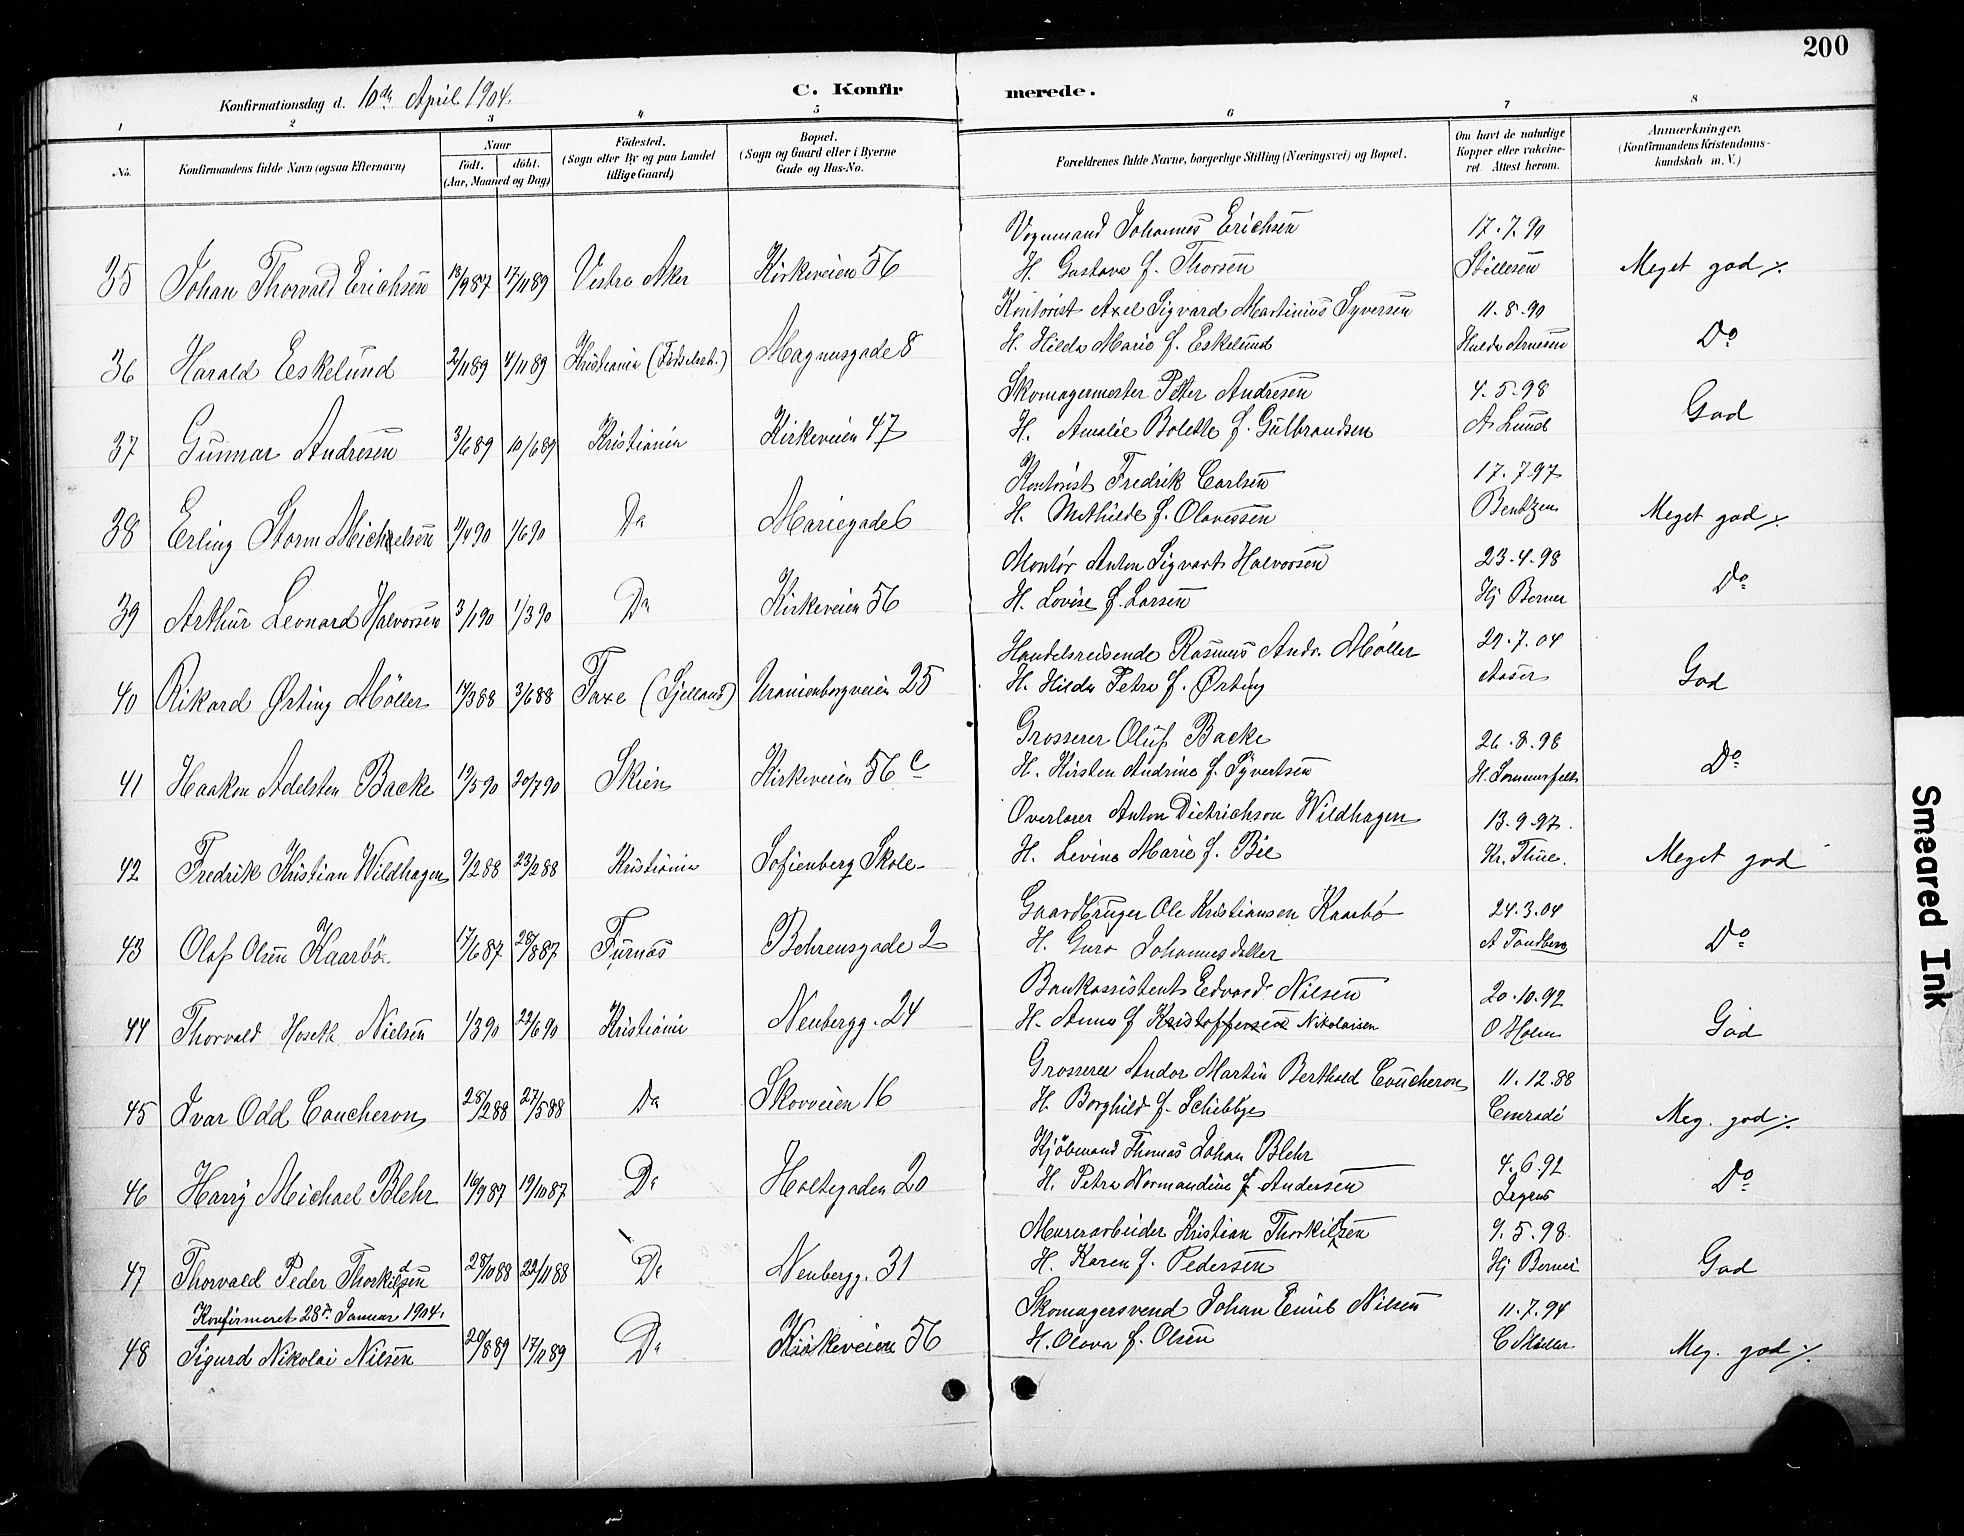 200
Konfirmationsdag d. 10de April 1904.
C. Konfirmerede.
1 2 3 4 5 6 7 8
No.
Konfirmandens fulde Navn (ogsaa Efternavn)
Naar
födt. döbt.
(Aar, Maaned og Dag)
Födested.
(Sogn eller By og paa Landet
tillige Gaard)
Bopæl.
(Sogn og Gaard eller i Byerne
Gade og Hus-No.
Forældrenes fulde Navne, borgerlige Stilling (Næringsvei) og Bopæl.
Om havt de naturlige
Kopper eller vakcine-
ret. Attest herom.
Anmærkninger.
(Konfirmandens Kristendoms-
kundskab m. V.)
Vognmand Johannes Erichsen 17.7.90
35 Johan Thorvald Erichsen 13/9 87 17/11 89 Vestre Aker Kirkeveien 56 H. Gustava f. Thorsen Stillesen Meget god ./.
Kontorist Axel Sigvard Martinius Syversen 11.8.90
36 Harald Eskelund 2/11 89 4/11 89 Kristiania (Fødselsst.) Magnusgade 8 H. Hilda Marie f. Eskelund Hulda Arnesen Do
Skomagermester Peter Andresen 4.5.98
37 Gunnar Andresen 3/6 89 10/6 89 Kristiania Kirkeveien 47 H. Amalie Bolette f. Gulbrandsen A Lund God
Kontorist Fredrik Carlsen 17.7.97
38 Erling Storm Michelsen 11/4 90 1/6 90 Do Mariegade 6 H. Mathilde f. Olavessen Bentzen Meget god ./.
Montør Anton Sigvart Halvorsen 23.4.98
39 Arthur Leonard Halvorsen 3/1 90 1/3 90 Do Kirkeveien 56 H. Lovise f. Larsen Hj Berner Do
Handelsreisende Rasmus Andr. Möller 29.7.04
40 Rikard Ørting Möller 14/3 88 3/6 88 Faxe (Sjelland) Uranienborgveien 25 H. Hilda Petra f. Ørting Aaser God
Grosserer Oluf Backe 26.8.98
41 Haakon Adelsten Backe 19/5 90 20/7 90 Skien Kirkeveien 56 C H. Kirsten Andrine f. Syvertsen H. Sommerfelt Do
Overlærer Anton Dietrichson Wildhagen 13.9.97.
42 Fredrik Kristian Wildhagen 9/2 88 23/2 88 Kristiania Sofienberg Skole H. Levine Marie f. Bie Kr. Thue. Meget god
Gaardbruger Ole Kristiansen Kaarbö 24.3.04
43 Olaf Olsen Kaarbö 17/6 87 28/8 87 Furnæs Behrensgade 2 H. Guro Johannesdatter A Tandberg Do
Bankassistent Edvard Nilsen 20.10.92
44 Thorvald Hoseth Nielsen 1/3 90 22/6 90 Kristiania Neubergg. 24 H. Anna f Kristoffersen Nikolaisen O Holm God
Grosserer Andor Martin Berthold Coucheron 11.12.88
45 Ivar Odd Coucheron 25/2 88 27/5 88 Do Skovveien 16 H. Borghild f. Schibbye Conradi Meg. god ./.
Kjöbmand Thomas Johan Blehr 4.6.92
46 Harry Michael Blehr 16/9 87 19/10 87 Do Holtegaden 20 H. Petra Normandine f. Andersen Do
Murerarbeider Kristian Thorkildsen 9.5.98
47 Thorvald Peder Thorkildsen 28/10 88 22/11 88 Do Neubergg. 31 H. Karen f. Pedersen Hj Berner God
Konfirmeret 28de Januar 1904. Skomagersvend Johan Emil Nilsen 11.7.94
48 Sigurd Nikolai Nilsen 20/8 89 17/11 89 Do Kirkeveien 56 H. Olava f. Olsen C Møller Meg. god ./.
Smeared Ink